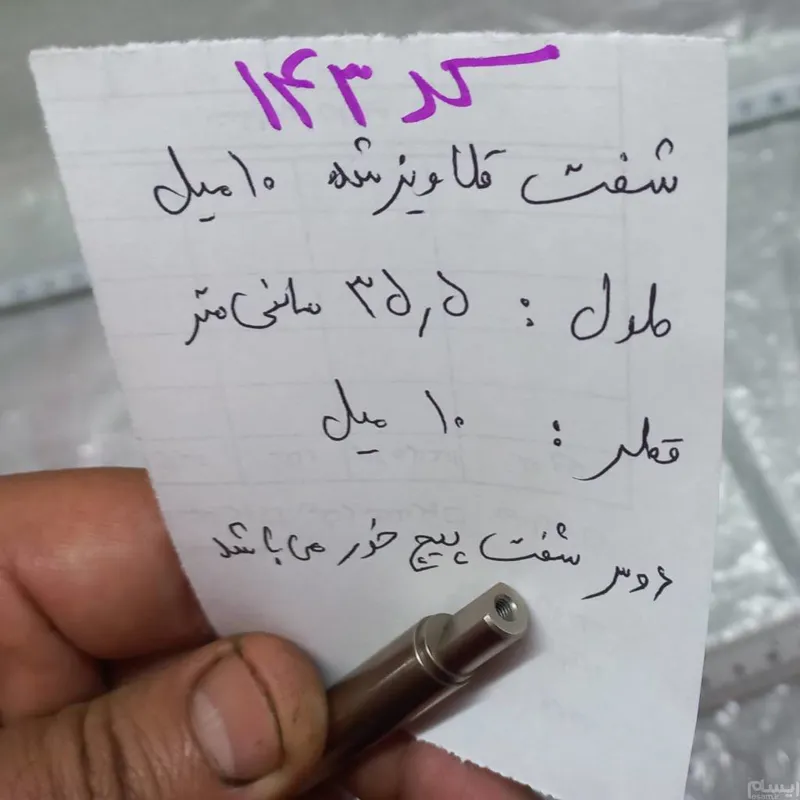 کد ۱۴۳
شفت قلاویز شده ۱۰ میل
طول : ۳۵٫۵ سانتی متر
قطر : ۱۰ میل
دو سر شفت پیچ خور می باشد
ایسام
esam.ir